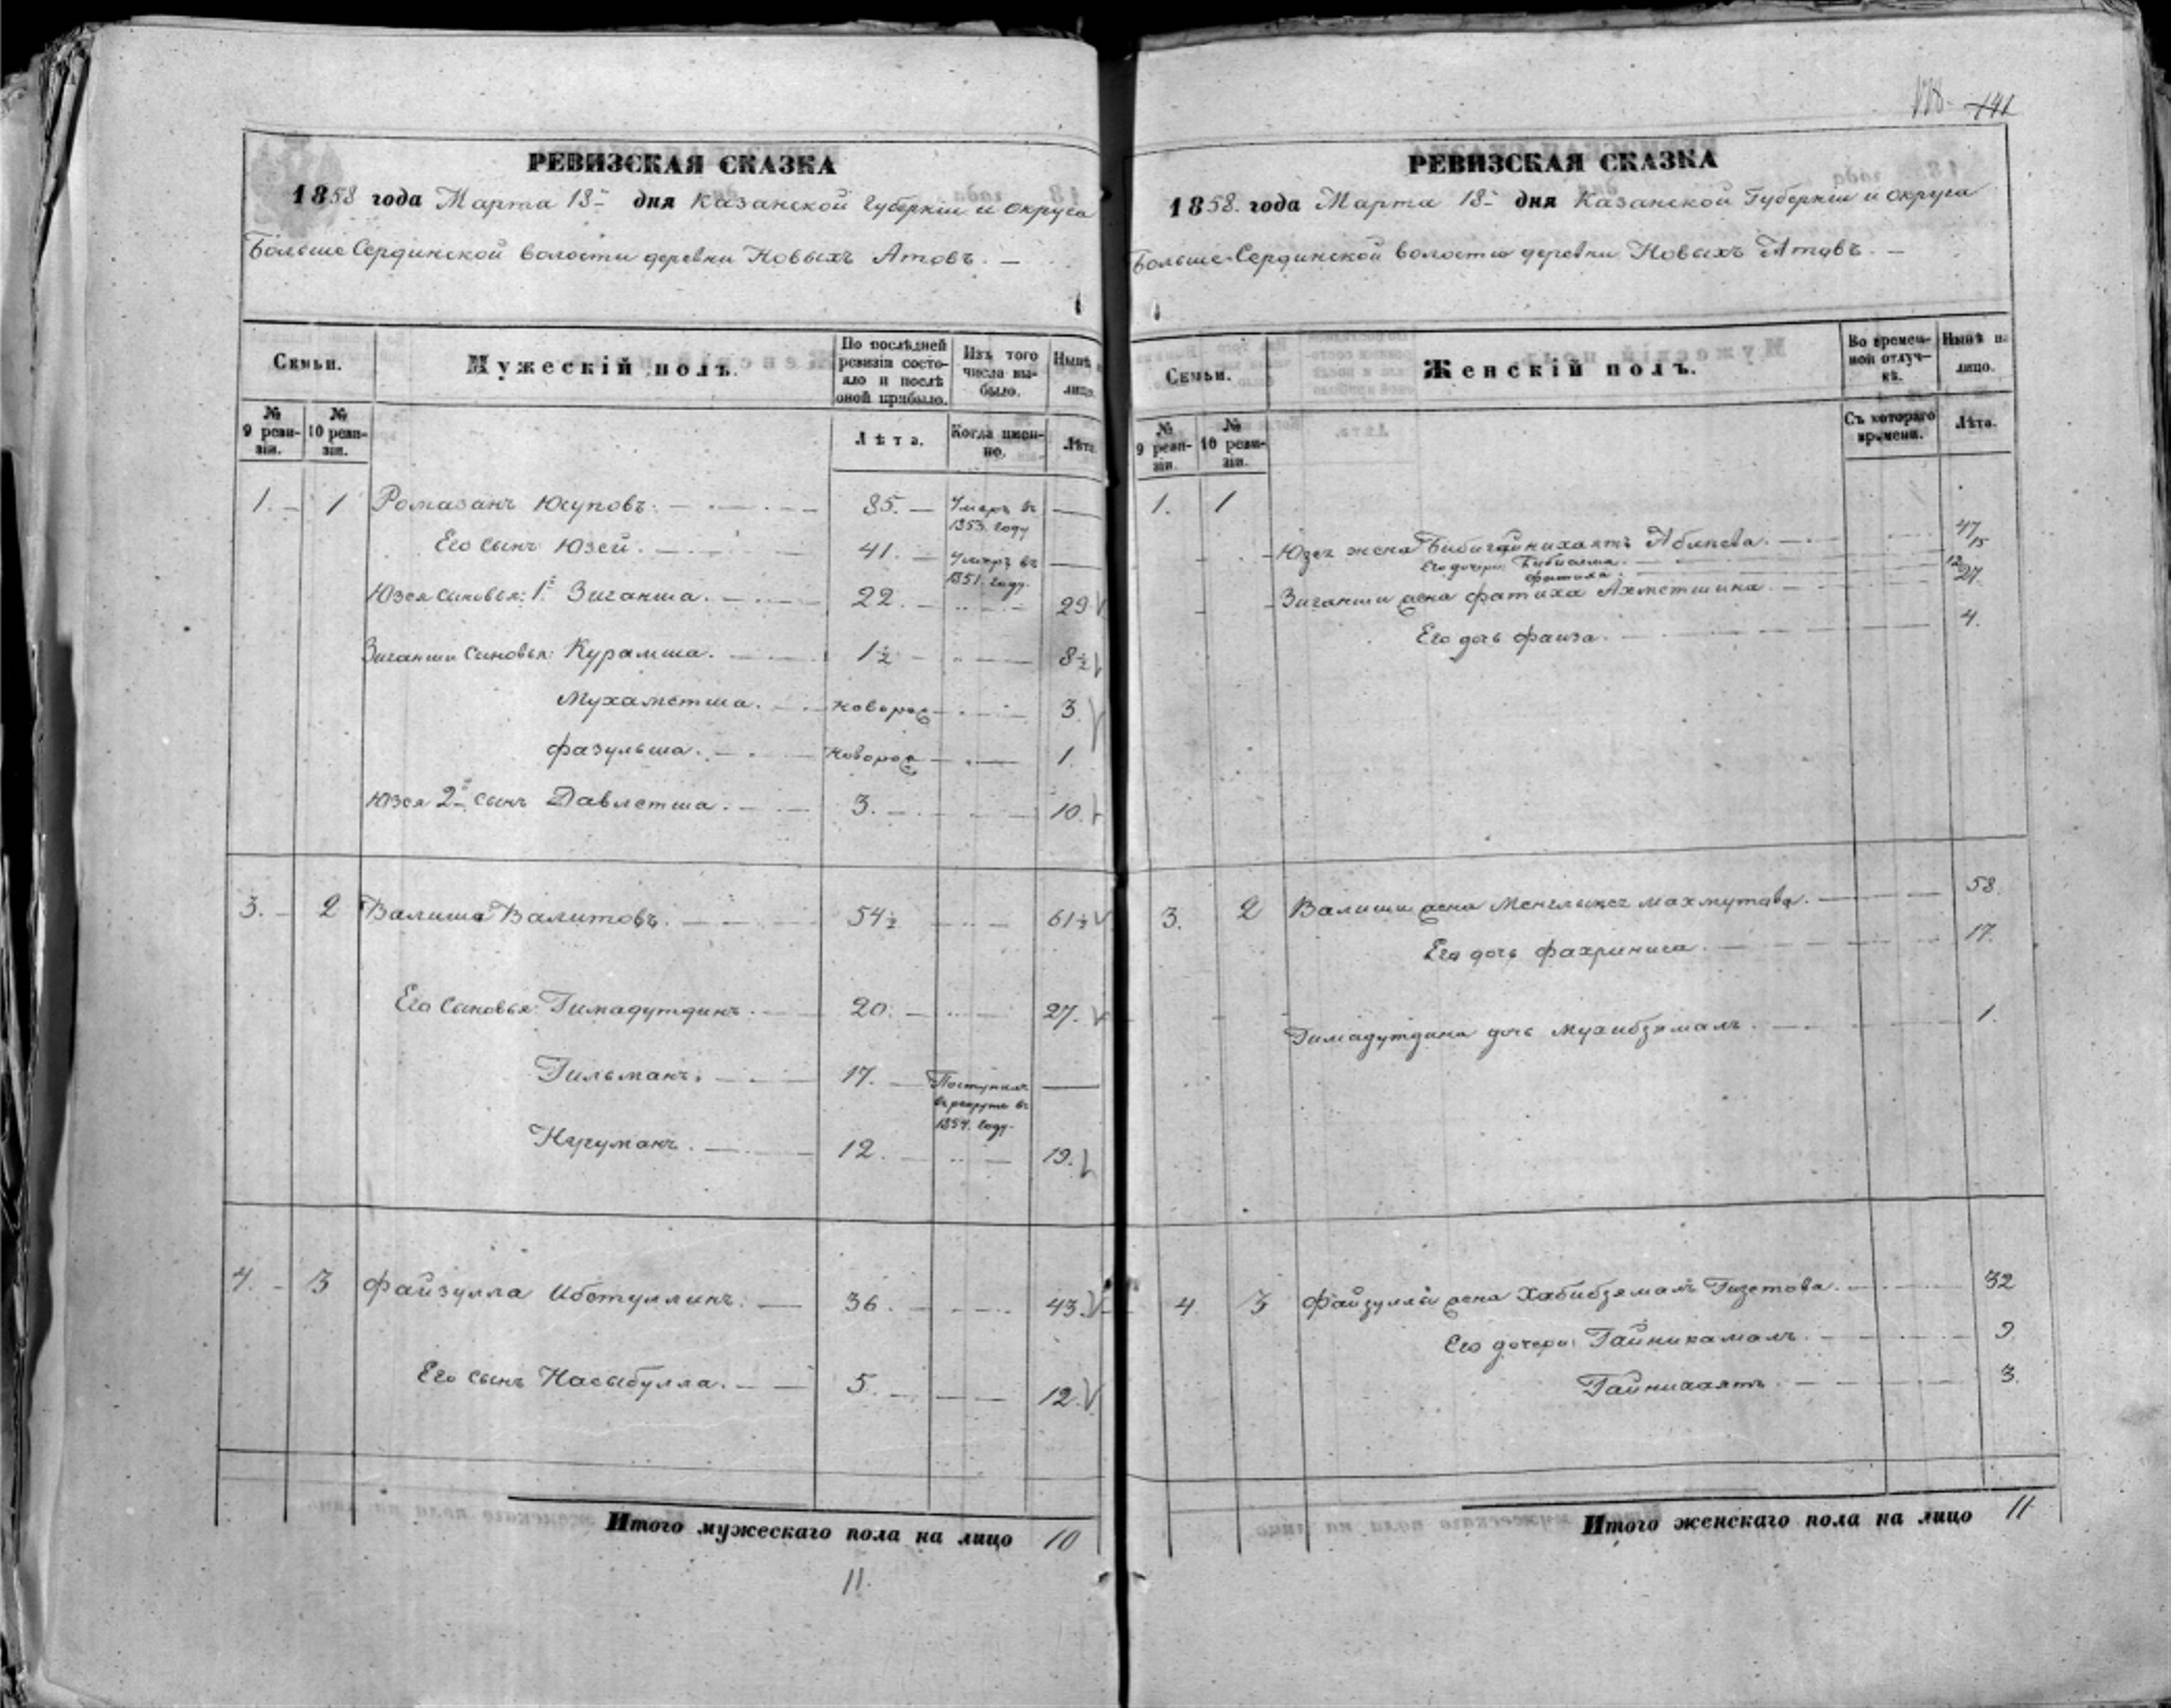 141
РЕВИЗСКАЯ СКАЗКА
1858 года Марта 13 дня Казанской Губернiи и округа
Больше Сердинской волости деревни Новыхъ Атовъ. —
Семьи.
Мужескiй полъ.
По послѣдней ревизiи состояло и послѣ оной прибыло.
Изъ того числа выбыло.
Нынѣ на лицо.
№ 9 ревизiи.
№ 10 ревизiи.
Лѣта.
Когда именно.
Лѣта.
1. 1 Ромазанъ Юсуповъ. 85. Умеръ въ 1853. году —
Его сынъ Юзей. 41. Умеръ въ 1851. году. —
Юзея сыновья: 1й Зиганша. 22. 29
Зиганши сыновья: Курамша. 1½ 8½
Мухаметша. новорож 3.
Фазульша. новорож 1.
Юзея 2й сынъ Давлетша. 3. 10.
3. 2 Валиша Валитовъ. 54½ 61½
Его сыновья: Гимадутдинъ. 20. 27.
Гильманъ. 17. Поступилъ въ рекруты въ 1854. году. —
Нугуманъ. 12. 19.
4. 3 Файзулла Ибетуллинъ. 36. 43.
Его сынъ Насыбулла. 5. 12.
Итого мужескаго пола на лицо 10
11.
РЕВИЗСКАЯ СКАЗКА
1858. года Марта 13 дня Казанской Губернiи и округа
Больше-Сердинской волости деревни Новыхъ Атовъ. —
Семьи.
Женскiй полъ.
Во временной отлучкѣ.
Нынѣ на лицо.
№ 9 ревизiи.
№ 10 ревизiи.
Съ котораго времени.
Лѣта.
1. 1
Юзея жена Бибигайнихаятъ 47
Его дочери: 15
Фатиха. 12
Зиганши жена Фатиха Ахметшина. 27.
Его дочь Фаиза. 4.
3. 2 Валиши жена Менглыке Махмутова. 58.
Его дочь Фахриниса. 17.
Гимадутдина дочь Мухибзямалъ. 1.
4. 3 Файзуллы жена Хабибзямалъ Гизетова. 32
Его дочери: Гайникамалъ. 9
Гайнихаятъ 3.
Итого женскаго пола на лицо 11